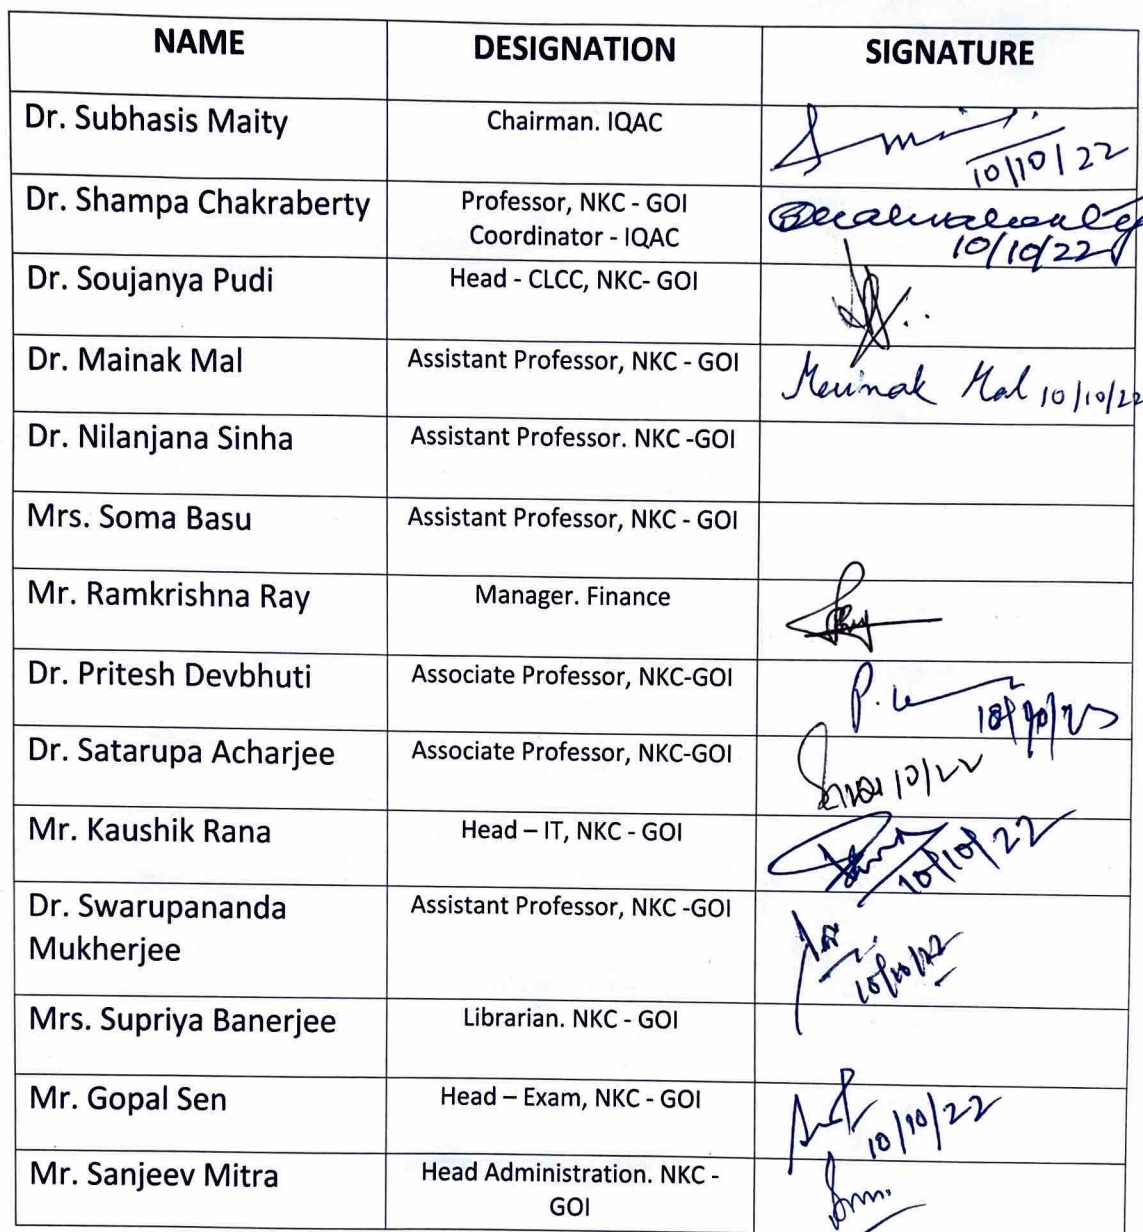 NAME DESIGNATION SIGNATURE
Dr. Subhasis Maity Chairman. IQAC
10/10/22
Dr. Shampa Chakraberty Professor, NKC - GOI
Coordinator - IQAC
10/10/22
Dr. Soujanya Pudi Head - CLCC, NKC- GOI
Dr. Mainak Mal Assistant Professor, NKC - GOI Mainak Mal 10/10/22
Dr. Nilanjana Sinha Assistant Professor. NKC -GOI
Mrs. Soma Basu Assistant Professor, NKC - GOI
Mr. Ramkrishna Ray Manager. Finance
Dr. Pritesh Devbhuti Associate Professor, NKC-GOI
Dr. Satarupa Acharjee Associate Professor, NKC-GOI
Mr. Kaushik Rana Head – IT, NKC - GOI
10/10/22
Dr. Swarupananda
Mukherjee Assistant Professor, NKC -GOI
10/10/22
Mrs. Supriya Banerjee Librarian. NKC - GOI
Mr. Gopal Sen Head – Exam, NKC - GOI
10/10/22
Mr. Sanjeev Mitra Head Administration. NKC -
GOI